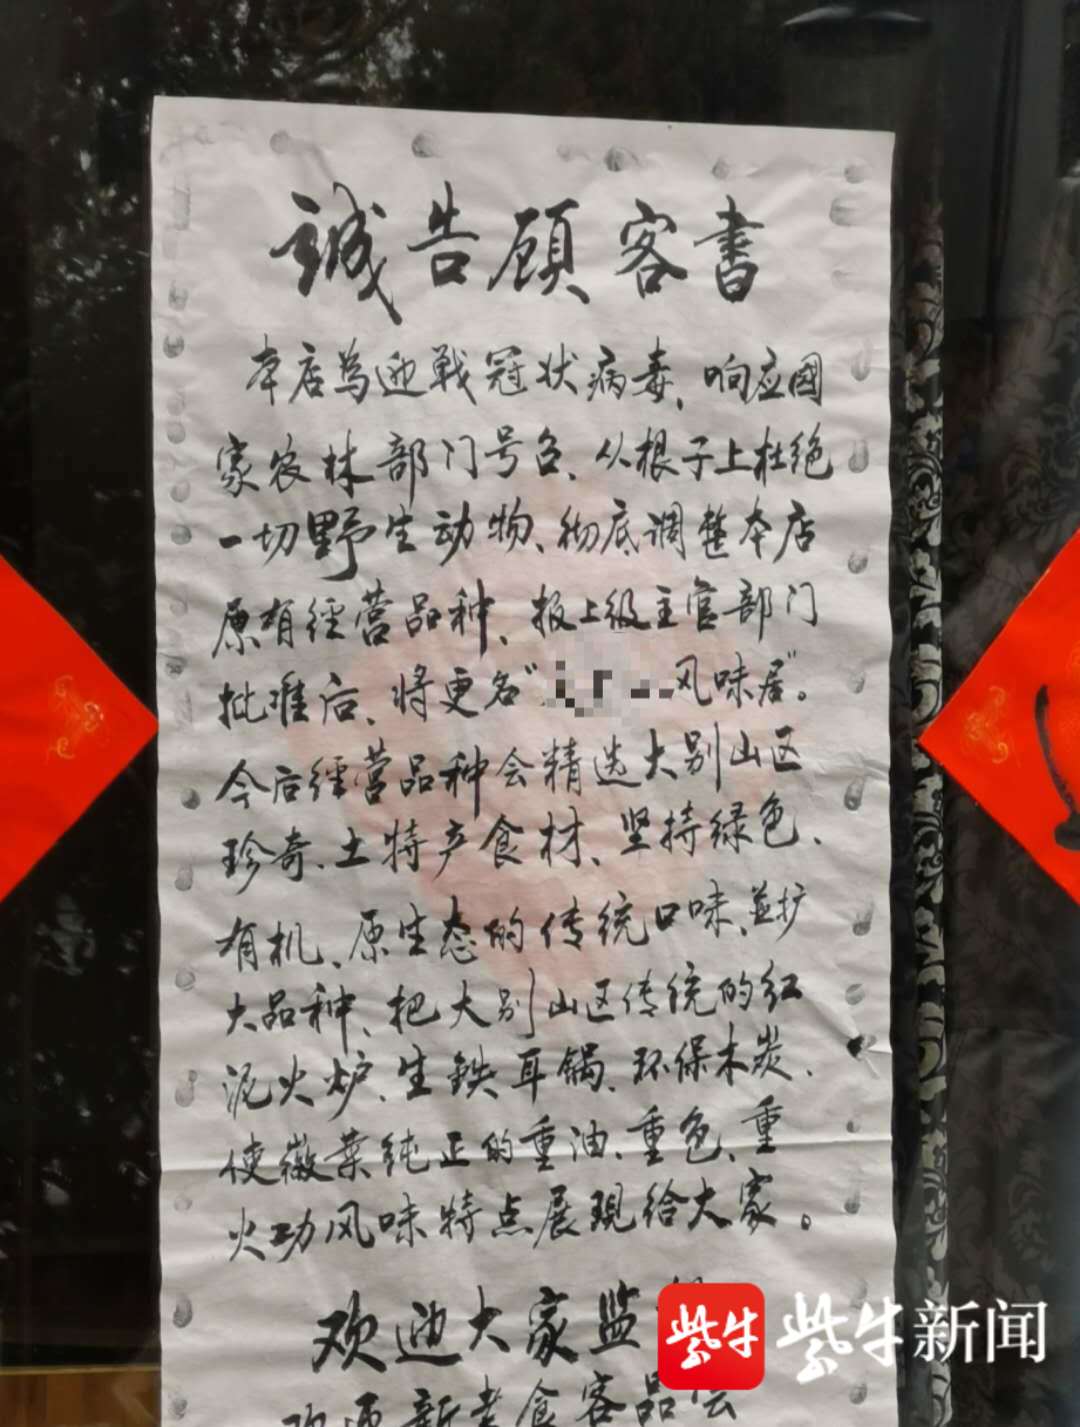 誠告顾客书
本店為迎戰冠状病毒、响应國
家农林部门号召、从根子上杜绝
一切野生动物、彻底调整本店
原有經营品种、报上级主官部门
批准后、将更名"风味居"。
今后經营品种会精选大别山区
珍奇、土特产食材、坚持绿色、
有机、原生态的传统口味、並扩
大品种、把大别山区传统的红
泥火炉、生鉄耳锅、环保木炭、
使徽菜纯正的重油、重色、重
火功风味特点展現给大家。
欢迎大家监
欢迎新老食客品尝
紫牛 紫牛新闻